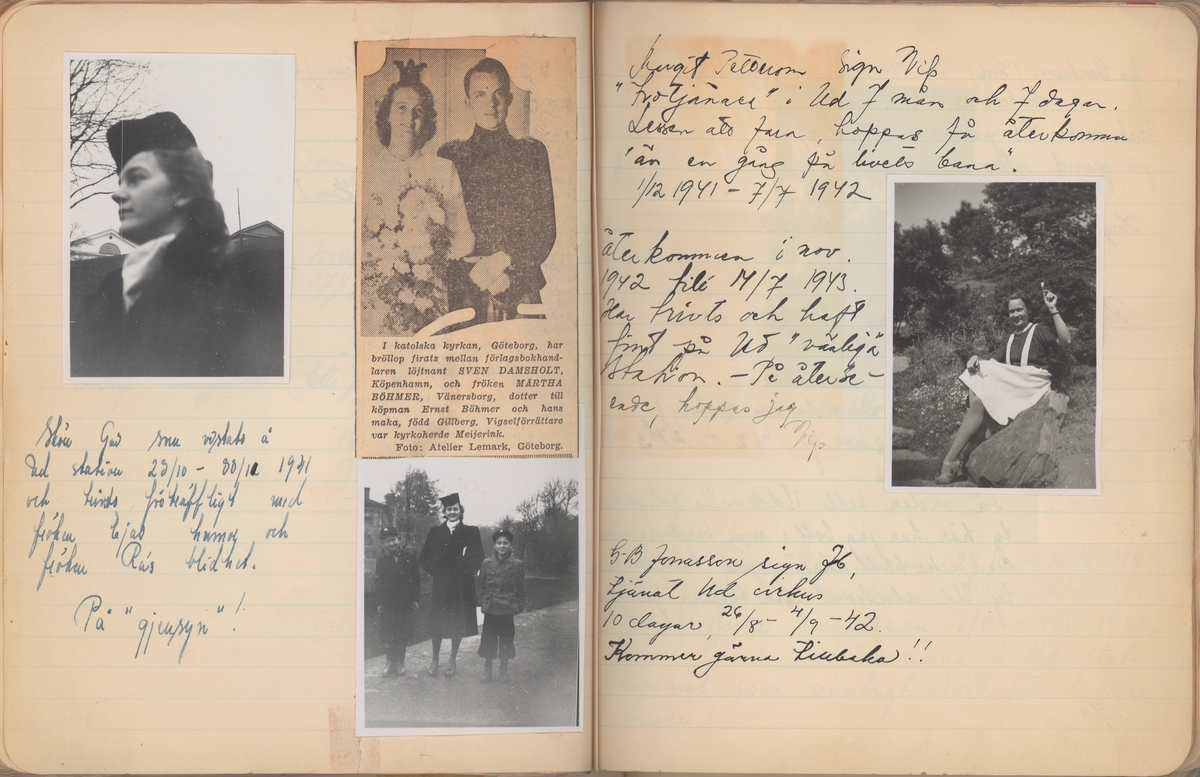 I katolska kyrkan, Göteborg, har
bröllop firats mellan förlagsbokhand-
laren löjtnant SVEN DAMSHOLT,
Köpenhamn, och fröken MÄRTHA
BÖHMER, Vänersborg, dotter till
köpman Ernst Böhmer och hans
maka, född Gillberg. Vigselförrättare
var kyrkoherde Meijerink.
Foto: Atelier Lemark, Göteborg.
som vistats å
Ud station 23/10 – 30/11 1941
och trivts förträffligt med
fröken Ejas humor och
fröken Rås blidhet.
På "gjensyn"!
Margit Petterson Sign Vip
"Frotjänare" i Ud 7 mån och 7 dagar.
Ledsen att fara, hoppas få återkomma
"än en gång på livets bana".
1/12 1941 – 7/7 1942
Återkommen i nov.
1942 till 14/7 1943.
Har trivts och haft
på Ud "vänliga
Station. – På återse-
ende, hoppas jag
Vip
G-B Jonasson sign
tjänat Ud cirkus
10 dagar, 26/8 – 4/9 – 42.
Kommer gärna tillbaka!!